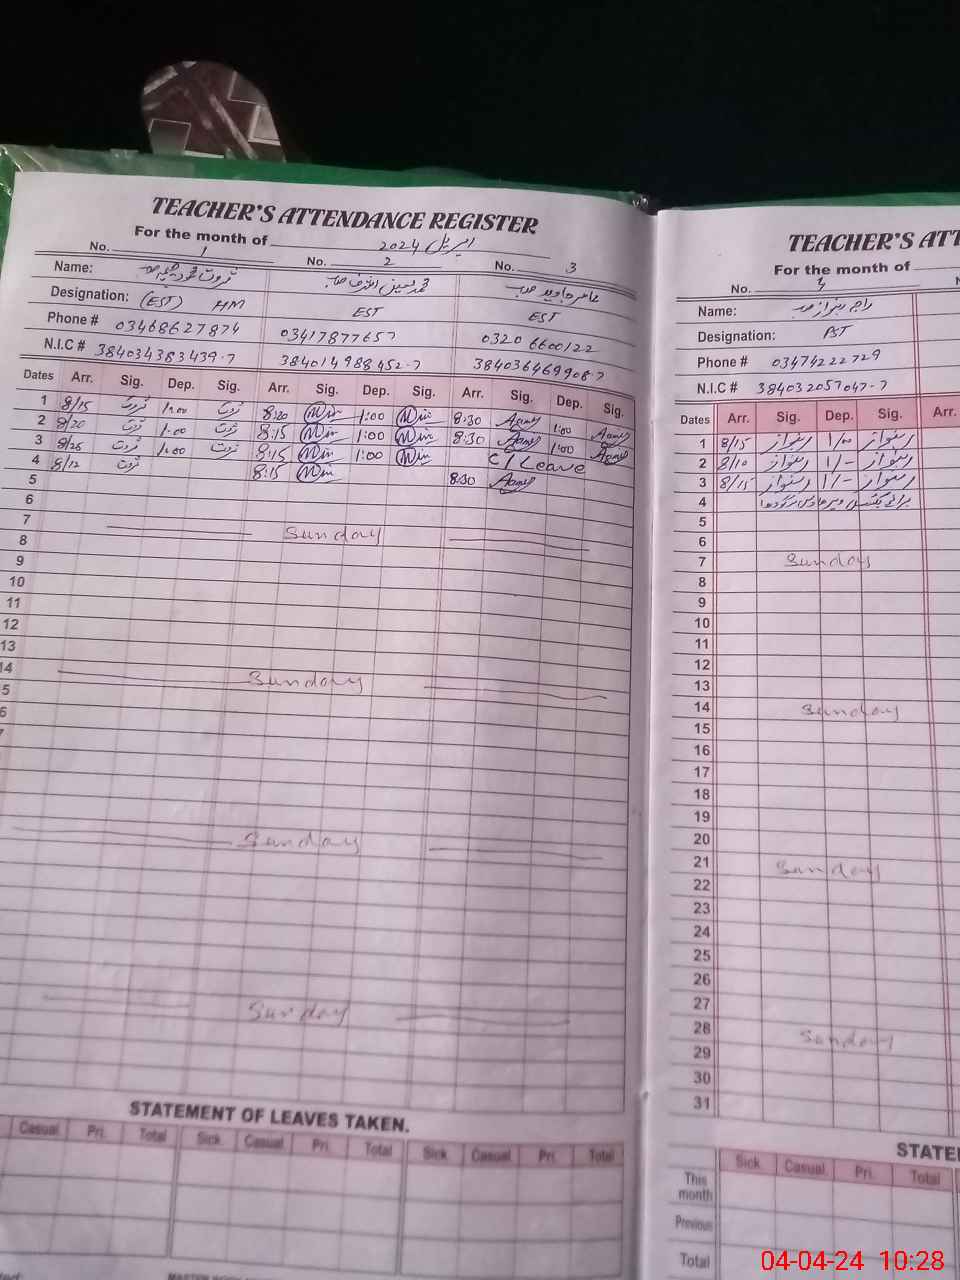 TEACHER'S ATTENDANCE REGISTER
For the month of اپریل 2024
No. 1 No. 2 No. 3
Name: عامر جاوید صاحب
Designation: (EST) HM EST EST
Phone # 03468627874 03417877657 0320 6600122
N.I.C # 384034383439-7 384014988452-7 384036469908-7
Dates Arr. Sig. Dep. Sig. Arr. Sig. Dep. Sig. Arr. Sig. Dep. Sig.
1 8/15 ثروت 1:00 ثروت 8:20 1:00 8:30 1:00
2 8/20 ثروت 1:00 ثروت 8:15 1:00 8:30 1:00
3 8/25 ثروت 1:00 ثروت 8:15 1:00 C/Leave
4 8/12 ثروت 8:15 8:30
5
6
7 Sunday
8
9
10
11
12
13
14 Sunday
5
6
7
Sunday
Sunday
STATEMENT OF LEAVES TAKEN.
Casual Pri. Total Sick Casual Pri. Total Sick Casual Pri. Total
TEACHER'S ATT
For the month of
No. 4
Name:
Designation: PST
Phone # 03474222729
N.I.C # 384032057047-7
Dates Arr. Sig. Dep. Sig. Arr.
1 8/15 ربنواز 1/00 ربنواز
2 8/10 ربنواز 1/- ربنواز
3 8/15 ربنواز 1/- ربنواز
4
5
6
7 Sunday
8
9
10
11
12
13
14 Sunday
15
16
17
18
19
20
21 Sunday
22
23
24
25
26
27
28 Sunday
29
30
31
STATE
Sick Casual Pri. Total
This month
Previous
Total
04-04-24 10:28